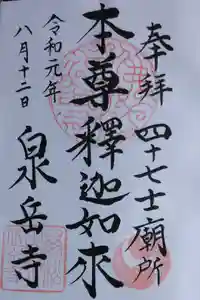 奉拝 四十七士廟所
本尊釋迦如來
令和元年
八月十二日
泉岳寺